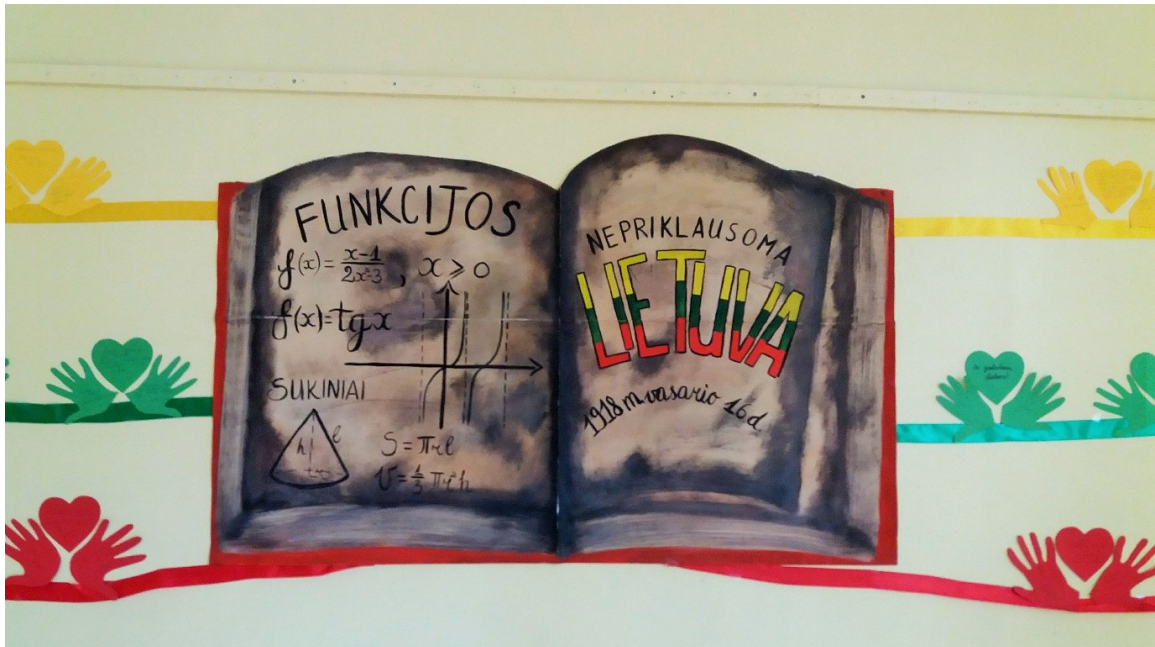 FUNKCIJOS
f(x)=\frac{x-1}{2x^2-3}, x ⩾ 0
f(x)=tgx
SUKINIAI
h l
r
S=πrl
V=\frac{1}{3}πr²h
NEPRIKLAUSOMA
LIETUVA
1918 m. vasario 16 d